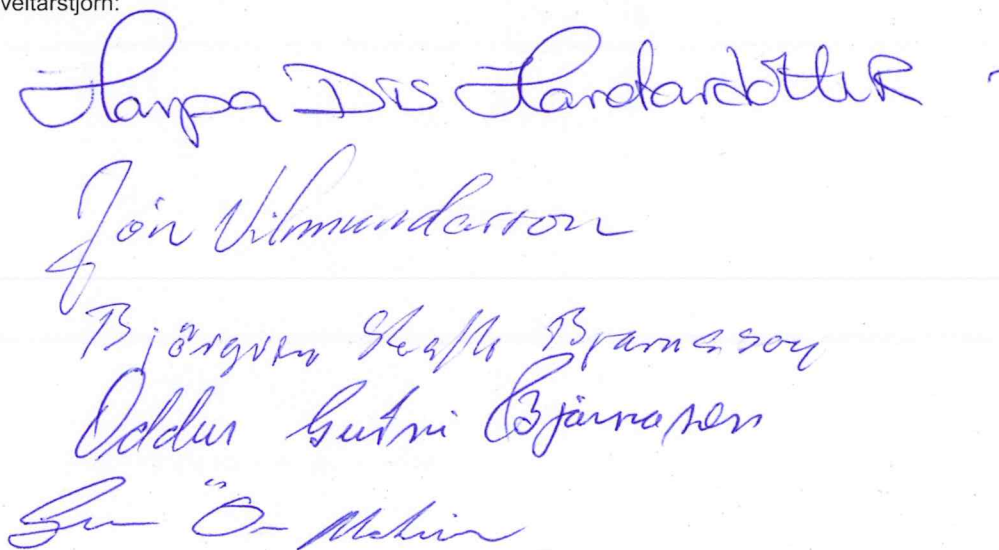 veitarstjórn:
Harpa Dís Harðardóttir
Jón Vilmundarson
Björgvin Skafti Bjarnason
Oddur Guðni Bjarnason
Örn